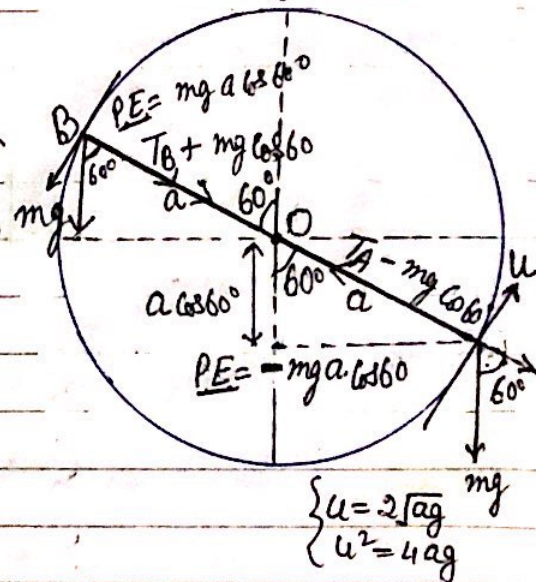 PE = mg a cos 60°
B
T_B + mg cos 60
60°
a
60°
mg
O
T_A - mg cos 60
60°
a
u
a cos 60°
PE = - mg a. cos 60
60°
mg
{ u = 2√ag
u² = 4ag